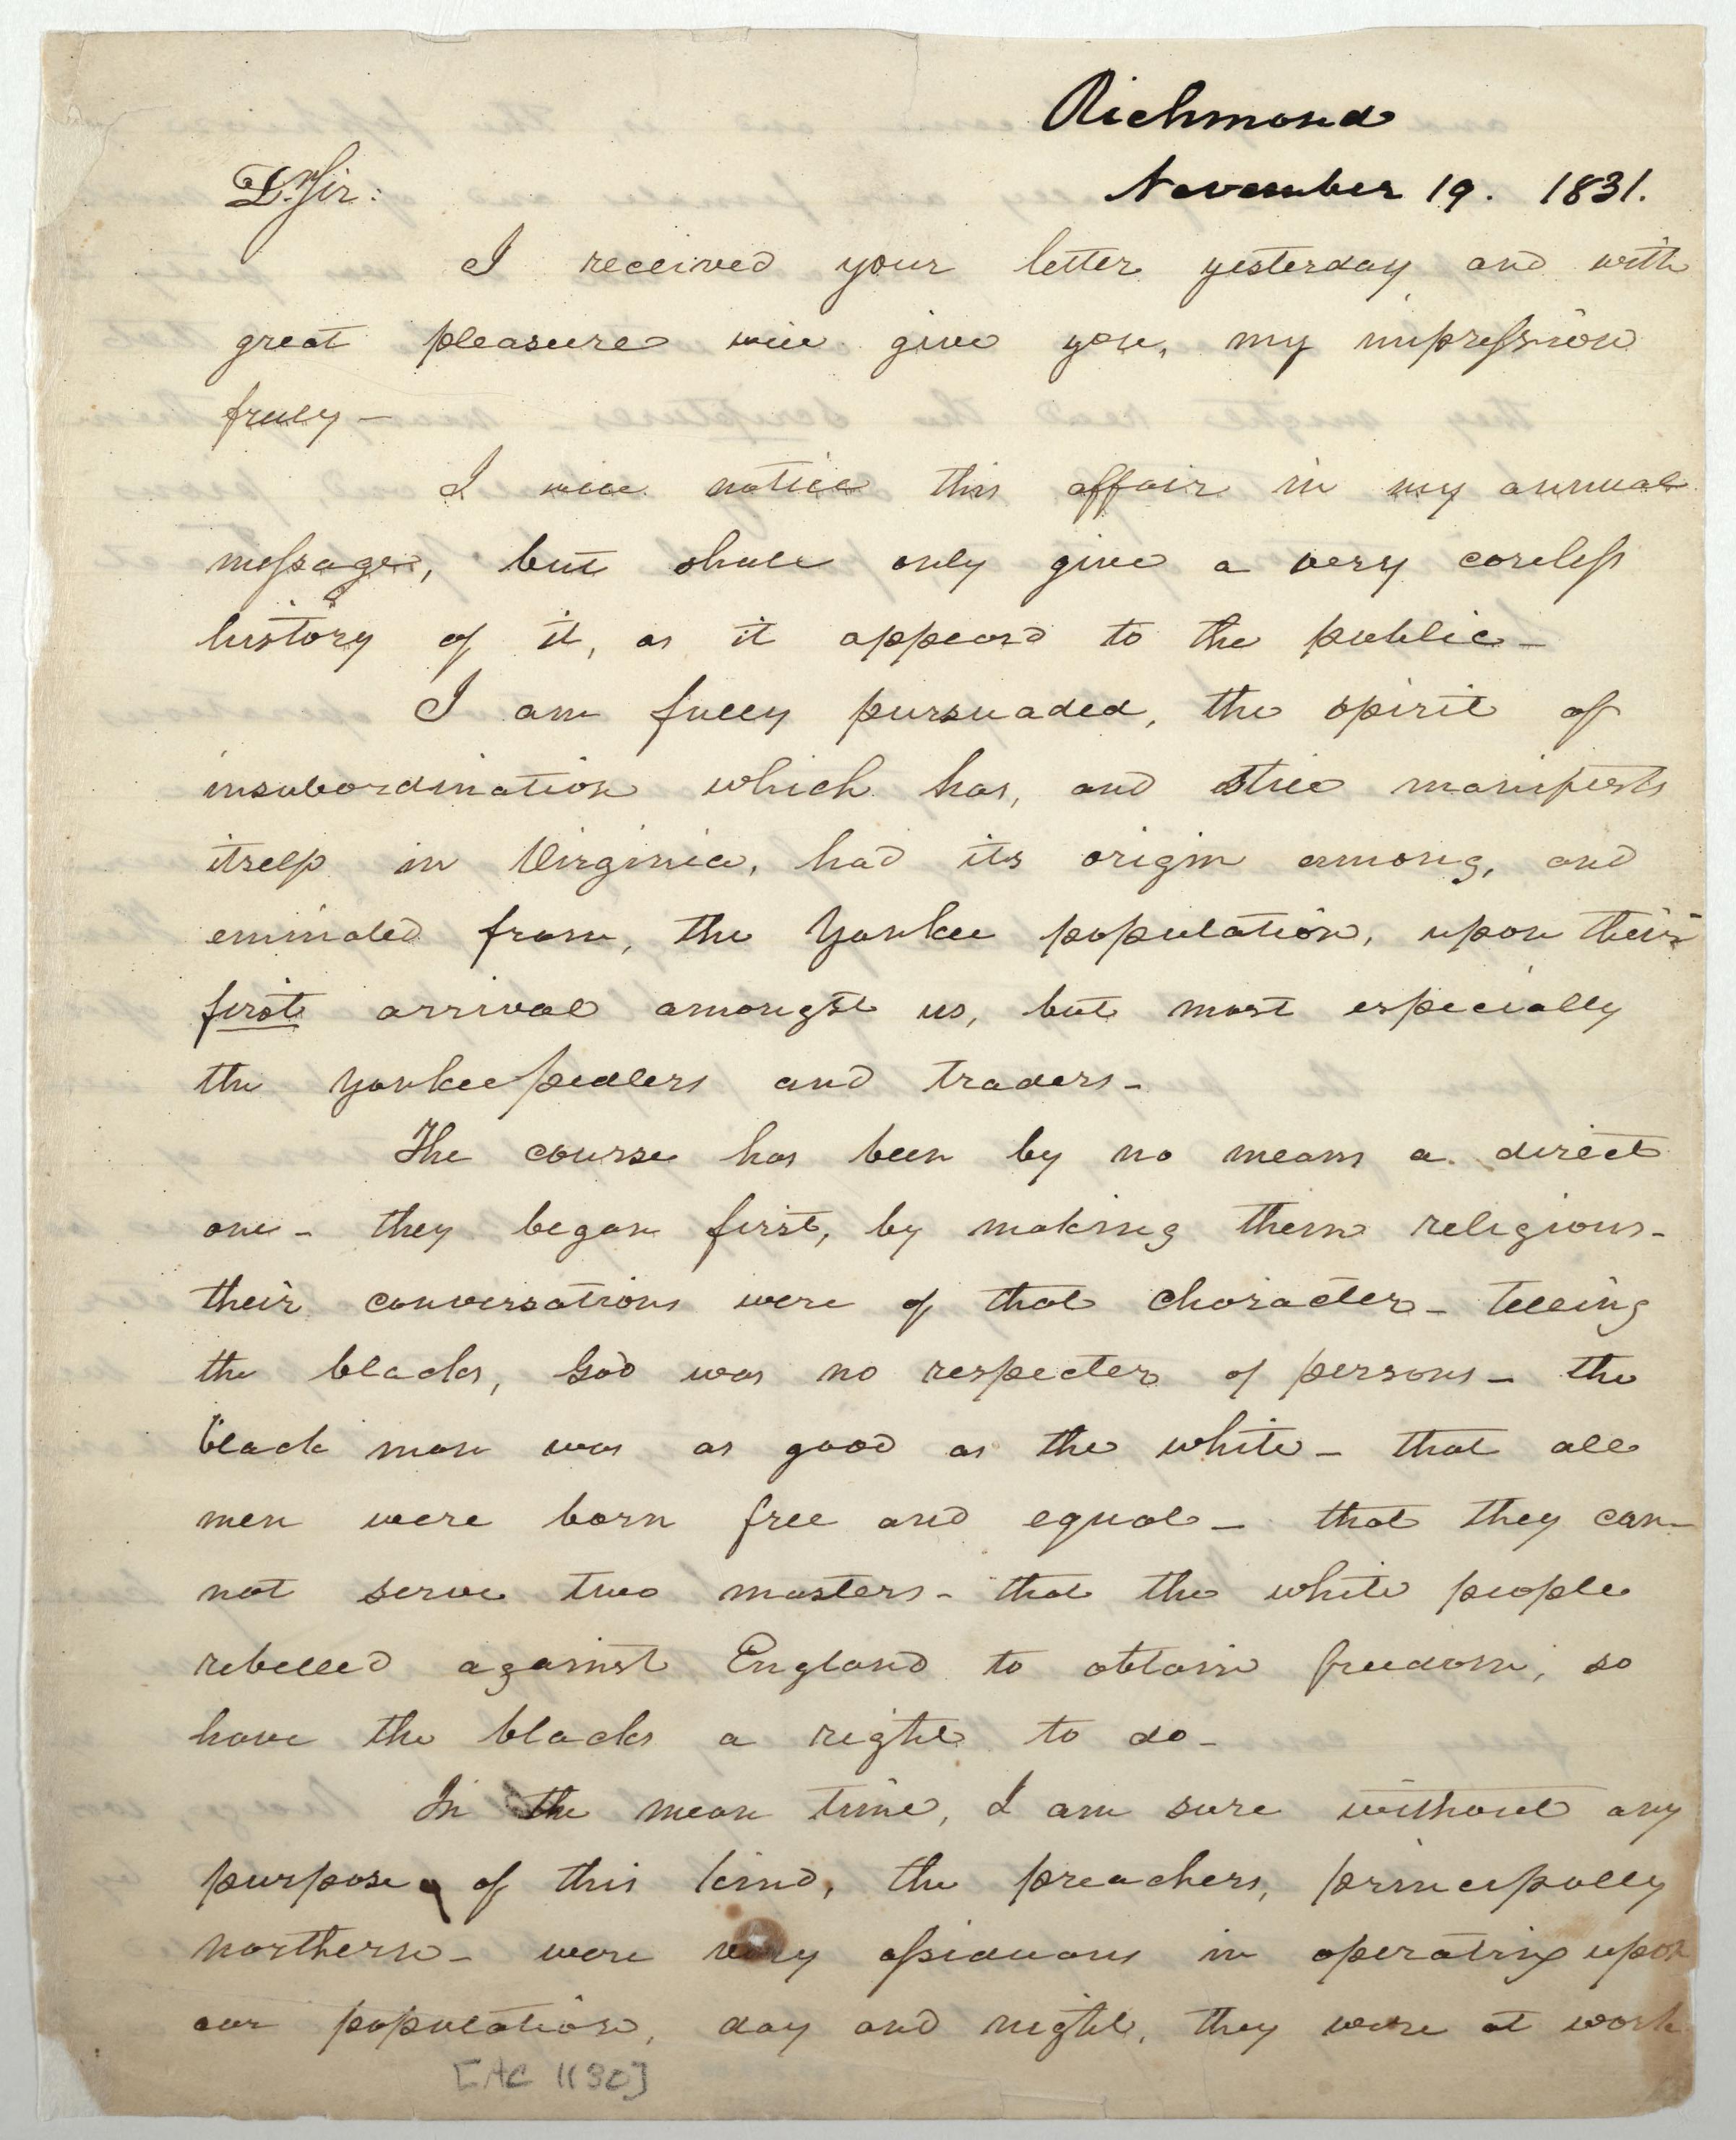 Richmond
November 19. 1831.
Dr. Sir:
I received your letter yesterday and with
great pleasure will give you, my impression
freely—
I will notice this affair in my annual
message, but shall only give a very careless
history of it, as it appeard to the public—
I am fully pursuaded, the spirit of
insubordination which has, and still manifests
itself in Virginia, had its origin among, and
eminated from, the Yankee population, upon their
first arrival amongst us, but most especially
the Yankee pedlers and traders—
The course has been by no means a direct
one— they began first, by making them religious—
their conversations were of that character— telling
the blacks, God was no respecter of persons— the
black man was as good as the white— that all
men were born free and equal— that they can-
not serve two masters— that the white people
rebelled against England to obtain freedom, so
have the blacks a right to do—
In the mean time, I am sure without any
purpose of this kind, the preachers, principally
northern— were very assiduous in operating upon
our population, day and night, they were at work
[AC 1130]